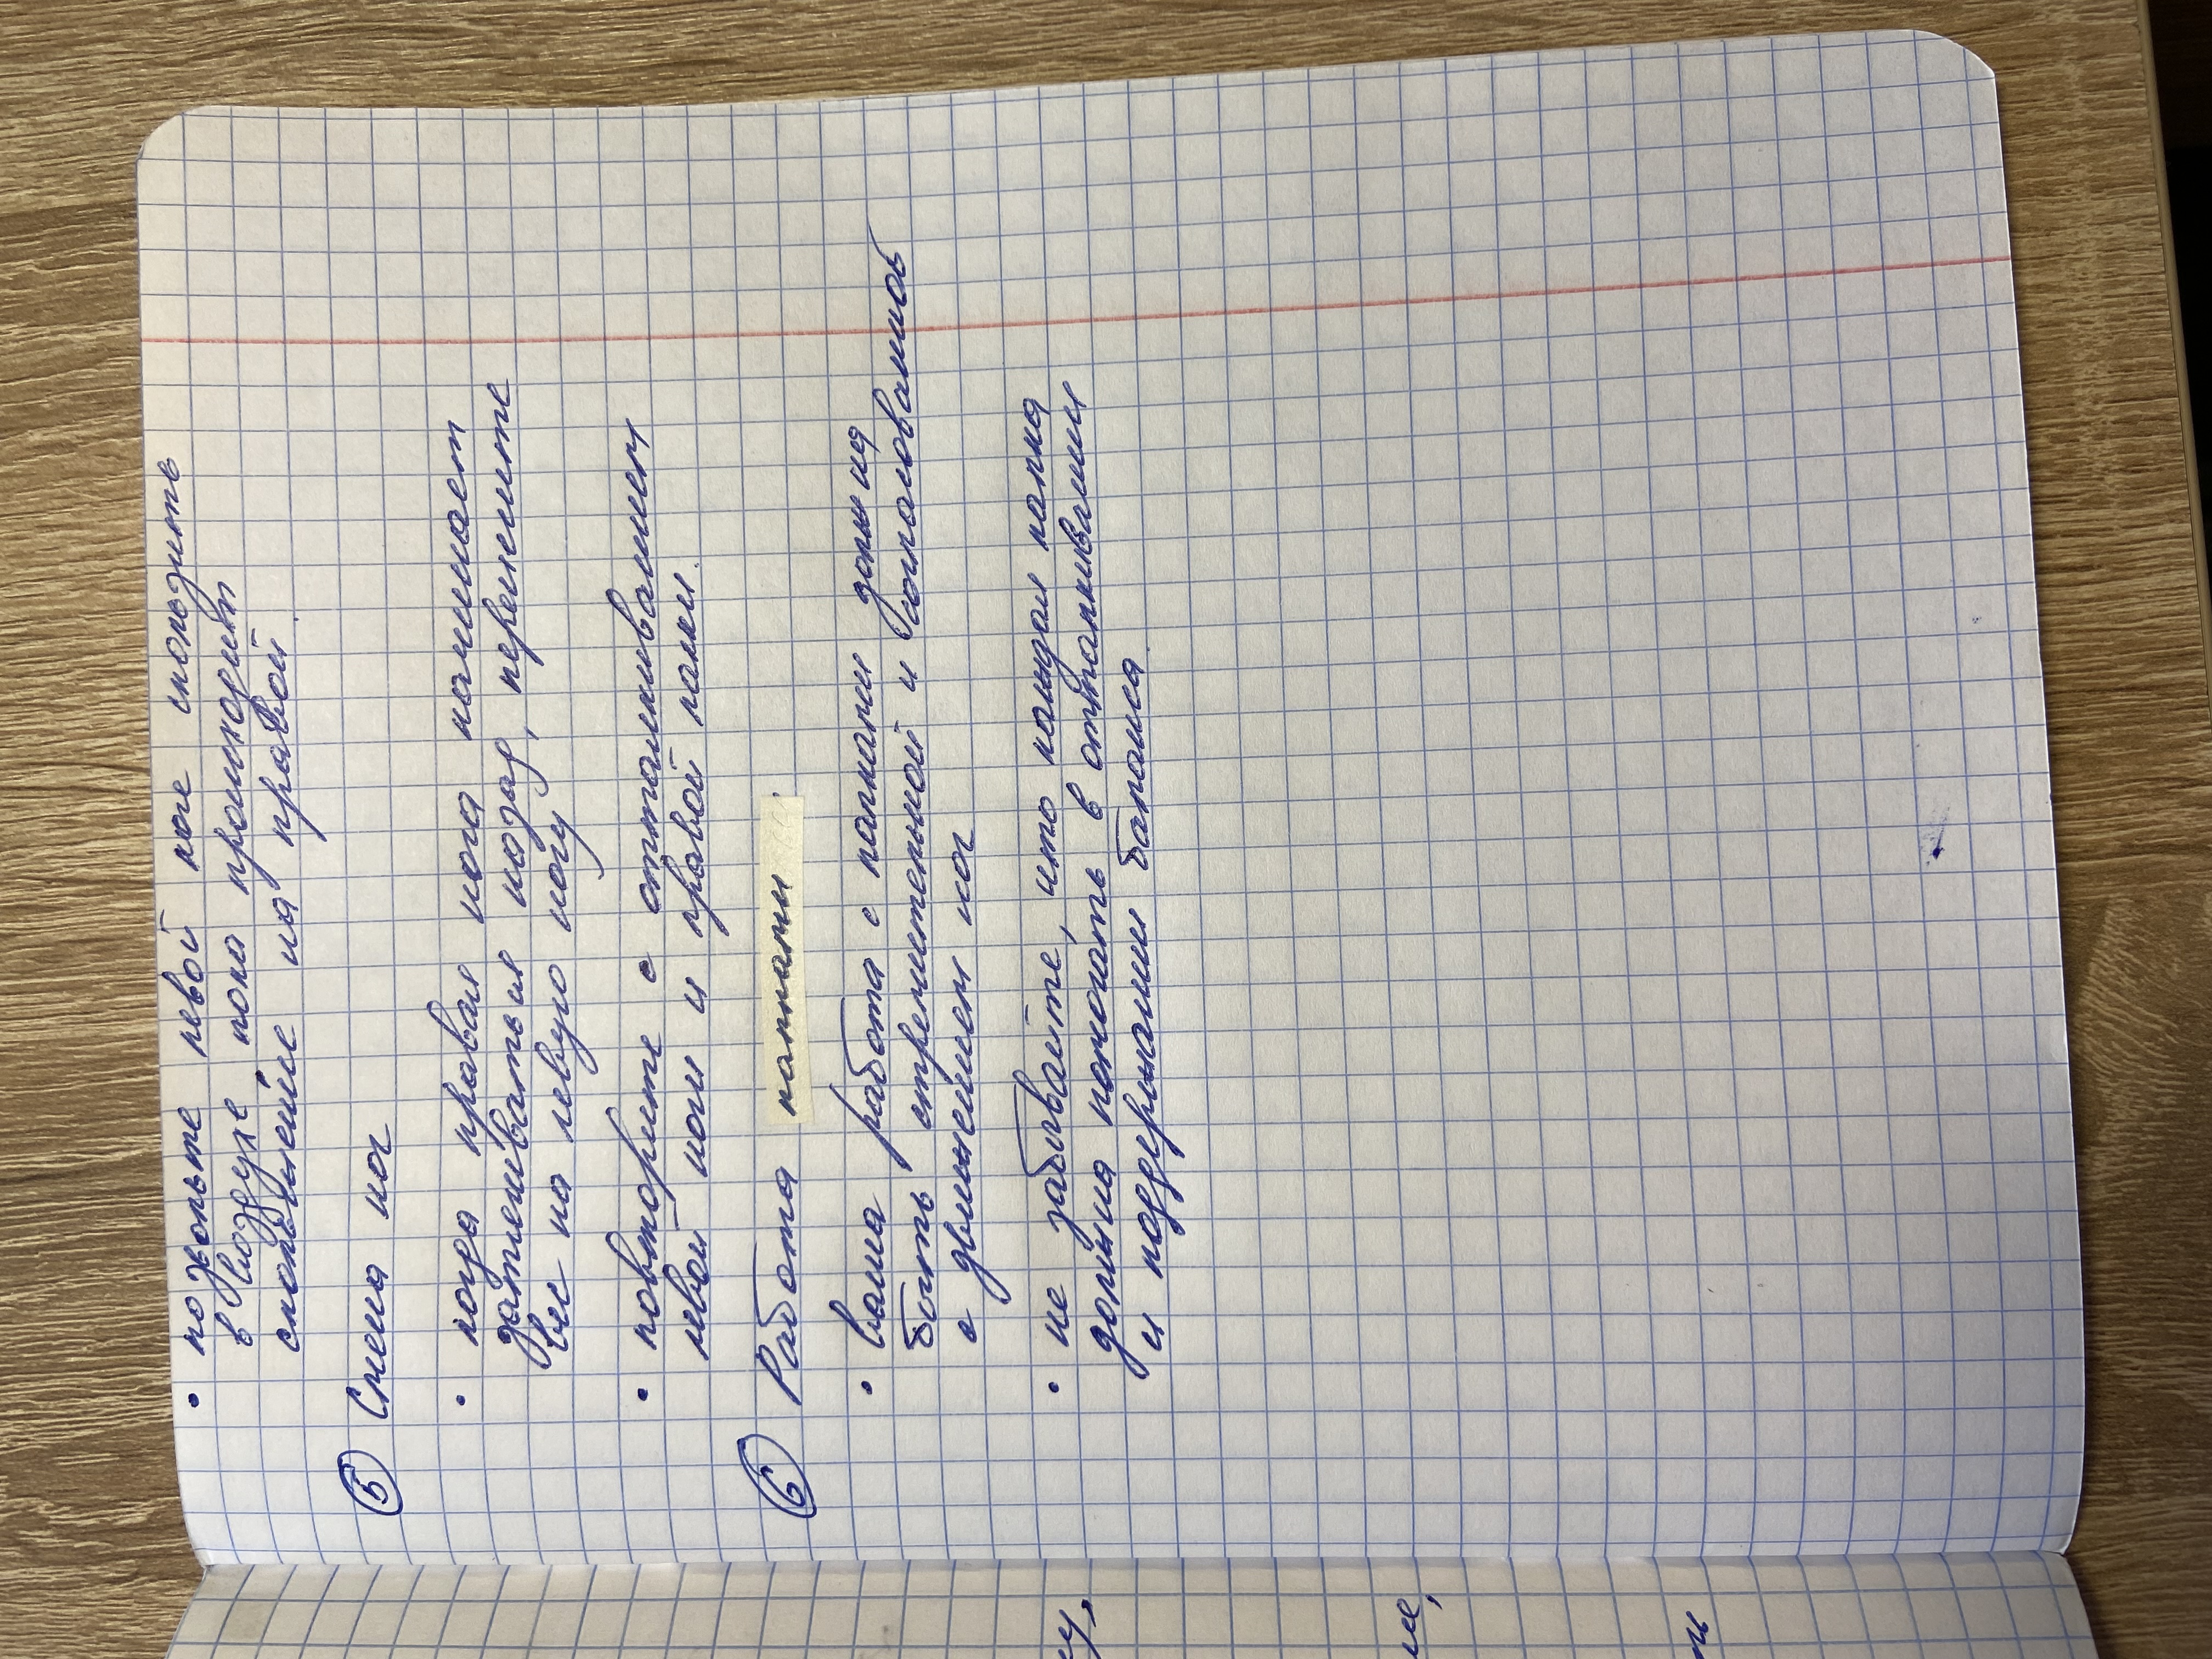 • позвольте левой ноге скользить
в воздухе пока происходит
скольжение на правой.
5 Смена ног
• когда правая нога начинает
затягиваться назад, перенесите
вес на левую ногу
• повторите с отталкиванием
левой ноги и правой палки.
6 Работа палками
• ваша работа с палками должна
быть стремительной и согласовываться
с движением ног
• не забывайте, что каждая палка
должна помогать в отталкивании
и поддержании баланса